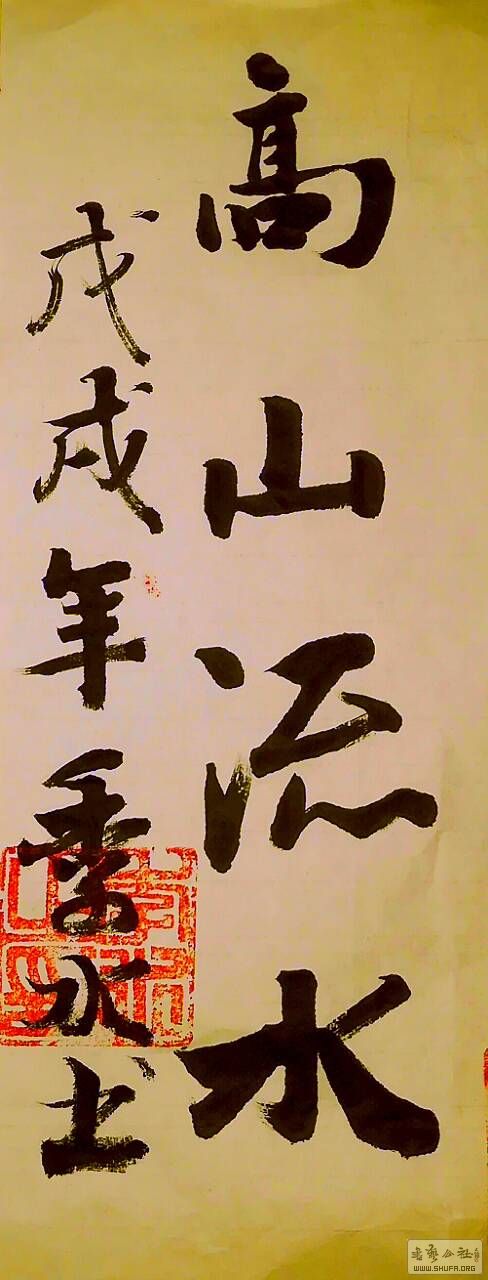 高山流水
戊戌年季水书
书法公社
WWW.SHUFA.ORG